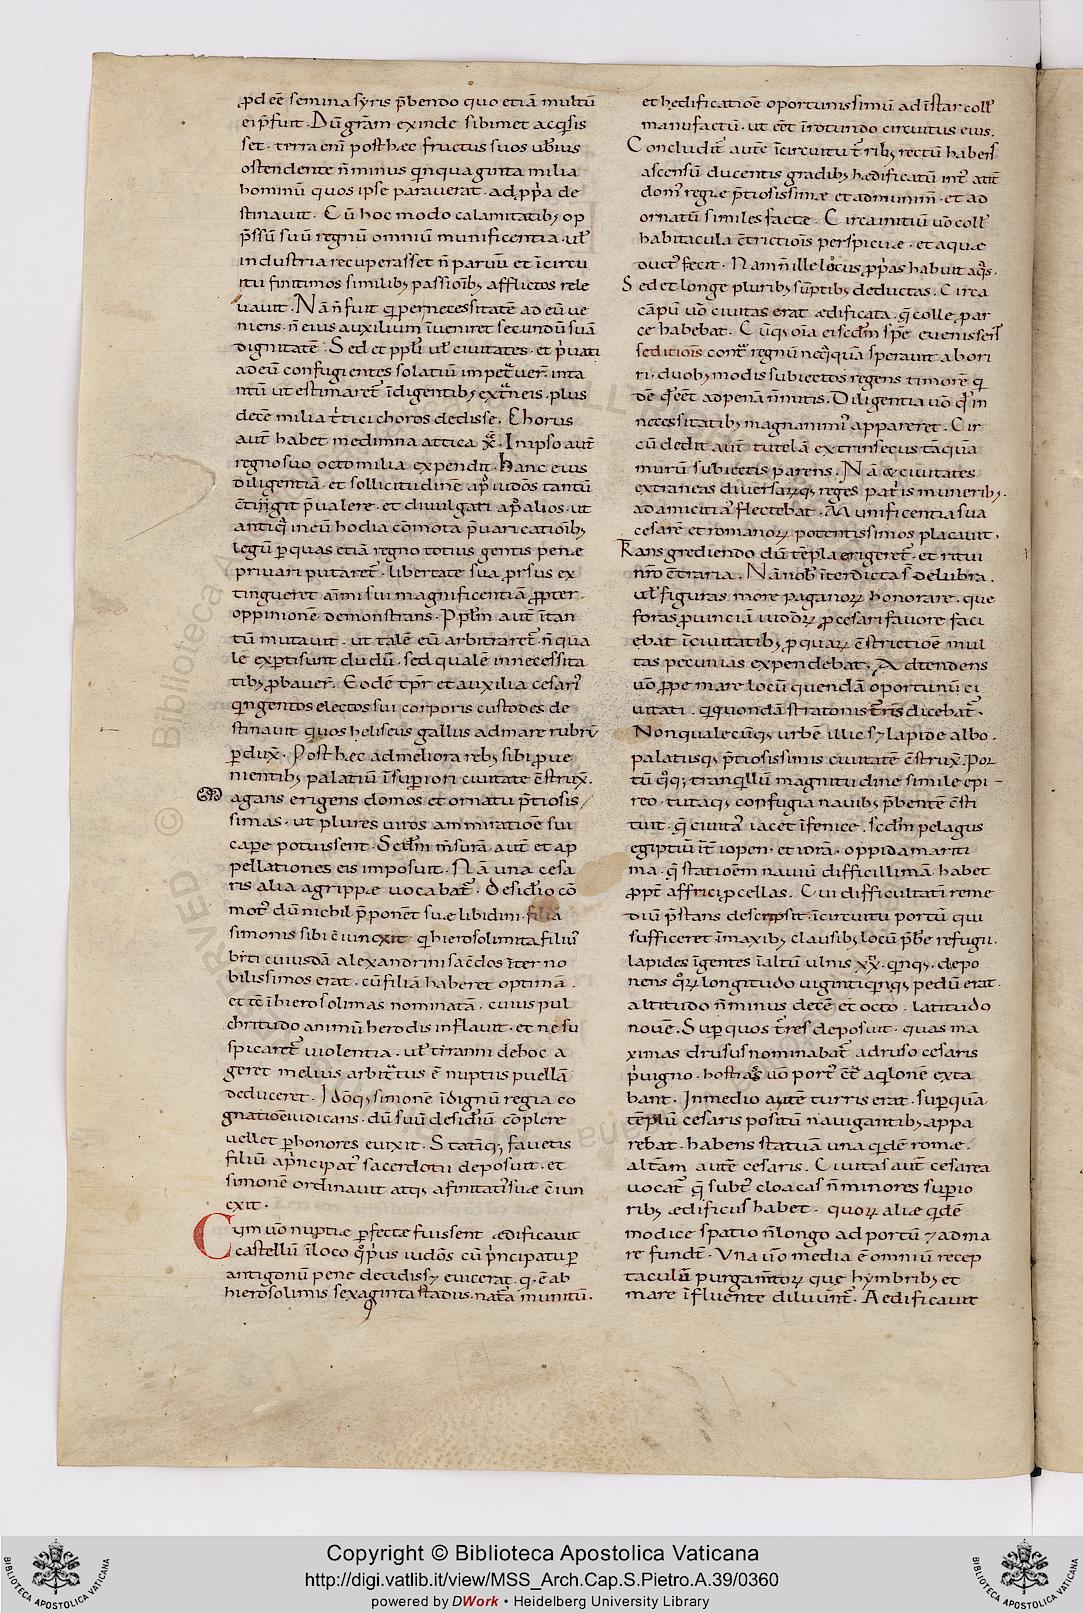 ꝓdeē semina syris p̄bendo quo etiā multū
ei p̄fuit. Dū gr̄am exinde sibimet acq̇sis
set. terra enī post hæc fructus suos ub̄ius
ostendente n̄ minus q̇nquaginta milia
hominū quos ipse paraverat. ad ꝓp̄a de
stinavit. Cū hoc modo calamitatibꝫ op
p̄ssū suū regnū omniū munificentia. ul̄
industria recuperasset n̄ parvū et īcircu
itu finitimos similibꝫ passioīb; afflictos rele
vavit. Nā n̄ fuit q̇ pernecessitatē ad eū ve
niens. n̄ eius auxilium īveniret secundū suā
dignitatē. Sed et ppl̄i ul̄ civitates. et p̄vati
ad eū confugientes solatiū impetᵃver̄. inta
ntū ut estimaret̄ īdigentibꝫ extᵃneis. plus
decē milia t̄tici choros dedisse. Chorus
aut̄ habet medimna attica x̄. In ipso aut̄
regno suo octo milia expendit. Hanc eius
diligentiā. et sollicitudinē ap̄ iudēos tantū
c̄tigit p̄valere. et divulgari ap̄ alios. ut
antiq̇ in eū hodia cōmota p̄varicatioīb;
legū ꝑ quas etiā regno totius gentis penæ
privari putaret̄. libertate sua ꝓrsus ex
tingueret aīmi sui magnificentiā ꝓpter
oppinionē demonstrans. Ppl̄m aut̄ ītan
tū mutavit. ut talē eū arbitraret̄. n̄ qua
lē exꝑti sunt dudū. sed qualē in necessita
tibꝫ ꝓbaver̄. Eodē tp̄r et auxilia cesari
q̇ngentos electos sui corporis custodes de
stinavit quos heliseus gallus ad mare rubrū
ꝑdux̄. Post hæc ad meliora rebꝫ sibi ꝓve
nientibꝫ palatiū ī suꝑiori civitate c̄strux̄.
agans erigens domos et ornatu p̄tiosis
simas. ut plures viros ammiratioē sui
cape potuissent. Scd̄m m̄surā aut̄ et ap
pellationes eis imposuit. Nā una cesa
ris alia agrippæ vocabat̄. Desid̄io cō
mot' dū nichil p̄ponēt suæ libidini. filiā
simonis sibi c̄iuncxit q̇ hierosolimita filius
br̄ti cuiusdā alexandrini sac̄dos īter no
bilissimos erat. cū filiā haberet optimā.
et tē ī hierosolimas nominatā. cuius pul
chritudo animū herodis inflavit. et ne su
spicaret̄ violentia. ul̄ tiranni de hoc a
geret melius arbitᵃtus ē nuptiis puellā
deduceret. Idōqꝫ simonē īdignū regia co
gnatioē iudicans. dū suū desid̄iū cōplere
vellet ꝑ honores evixit. Statīqꝫ favetis
filiū ap̄ncipat' sacerdotii deposuit. et
simonē ordinavit atqꝫ afinitati suæ c̄iun
cxit.
Cum v̄o nuptiæ ꝑfectæ fuissent ædificavit
castellū ī loco q̊ p̄us iudēos cū p̄ncipatu ꝑ
antigonū pene decidiss; evicerat. q̨ ē ab
hierosolimis sexaginta stadiis. nat̄a munitū.
et hedificatioē oportunissimū ad īstar coll'
manufactū. ut eēt ī rotundo circuitus eius.
Concludit̄ autē ī circuitu t̄ribꝫ rectū habens
ascensū ducentis gradibꝫ hædificatū. int' aūt
dom' regiæ p̄tiosissimæ et ad munim̄. et ad
ornatū similes factæ. Circa initiū v̄o coll'
habitacula c̄trictiois perspicuæ. et aquæ
duct' fecit. Nam n̄ ille locus ꝓp̄as habuit aq̇s.
Sed et longe pluribꝫ sūptibꝫ deductas. Circa
cāpū v̄o civitas erat ædificata. q̨ colle par
ce habebat. Cūqꝫ oīa ei scd̄m sp̄e evenissent
seditiois contᵃ regnū neq̇quā speravit abori
ri. duobꝫ modis subiectos regens timorē q̇
dē q̇ eēt ad penā īmitis. Diligentia v̄o q̇ in
necessitatibꝫ magnanim' appareret. Cir
cū dedit aut̄ tutelā extrinsecus tāquā
murū subiectis parens. Nā & civitates
extraneas diversarūqꝫ reges pat'is muneribꝫ.
ad amicitiā flectebat. Munificentia sua
cesarē et romanorꝫ potentissimos placavit.
Trans grediendo dū tēpla erigeret̄. et ritui
nr̄o c̄traria. Nā nob' īterdicta s̄ delubra.
ul̄ figuras more paganorꝫ honorare. que
foras provinciā iudeorꝫ ꝓ cesari favore faci
ebat ī civitatibꝫ ꝓ quarꝫ c̄strictioē mul
tas pecunias expendebat. Adtendens
v̄o ꝓpe mare locū quendā oportunū ci
vitati. q̇ quondā stratonis t̄ris dicebat̄.
Non qualecūqꝫ urbē illic s; lapide albo.
palatiisqꝫ p̄tiosissimis civitatē c̄strux̄. Por
tū q̊qꝫ tranq̇llū magnitudine simile epi
reo. tutaqꝫ confugia navibꝫ p̄bentē c̄sti
tuit. q̨ civitas iacet ī fenice. scd̄m pelagus
egiptiū īt' iopen. et iorā. oppida mariti
ma. q̨ statioēm naviū difficillimā habet
ꝓpt' affrici ꝓcellas. Cui difficultati reme
diū p̄stans descripsit. ī circuitu portū qui
sufficeret ī maxībꝫ clausibꝫ locū p̄be refugii.
Lapides īgentes ī altū ulnis xx. q̇nqꝫ. depo
nens q̊rꝫ longitudo viginti q̇nqꝫ pedū erat.
altitudo n̄ minus decē et octo. latitudo
novē. Suꝑ quos t̄res deposuit. quas ma
ximas drusus nominabat̄ a druso cesaris
p̄vigno. hostia v̄o port' c̄tᵃ aq̇lonē exta
bant. In medio autē turris erat. suꝑ quā
tēplū cesaris positū navigantibꝫ appa
rebat. habens statuam una q̇dē romæ.
altām autē cesaris. Civitas aut̄ cesarea
vocat̄ q̨ subt' cloacas n̄ minores suꝑio
ribꝫ ædificiis habet. quorꝫ aliæ q̇dē
modice spatio n̄ longo ad portū ⁊ ad ma
re fundt̄. Una v̄o media ē omniū recep
taculū purgam̄torꝫ que hymbribꝫ et
mare īfluente diluūnt̄. Aedificavit
Copyright © Biblioteca Apostolica Vaticana
http://digi.vatlib.it/view/MSS_Arch.Cap.S.Pietro.A.39/0360
powered by DWork • Heidelberg University Library